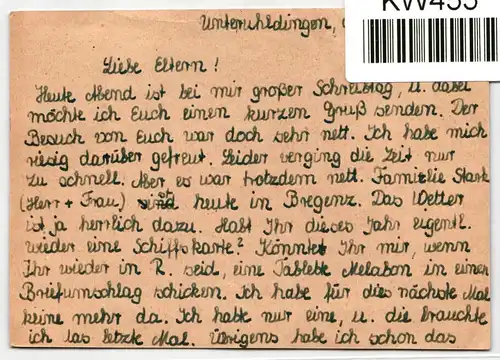 KW455
Unteruhldingen,
Liebe Eltern!
Heute Abend ist bei mir großer Schreibtag, u. dabei
möchte ich Euch einen kurzen Gruß senden. Der
Besuch von Euch war doch sehr nett. Ich habe mich
riesig darüber gefreut. Leider verging die Zeit nur
zu schnell. Aber es war trotzdem nett. Familie Stark
(Herr + Frau) sind heute in Bregenz. Das Wetter
ist ja herrlich dazu. Habt Ihr dieses Jahr eigentl.
wieder eine Schiffskarte? Könntet Ihr mir, wenn
Ihr wieder in R. seid, eine Tablette Melabon in einen
Briefumschlag schicken. Ich habe für dies nächste Mal
keine mehr da. Ich hatte nur eine, u. die brauchte
ich das letzte Mal. Übrigens habe ich schon das